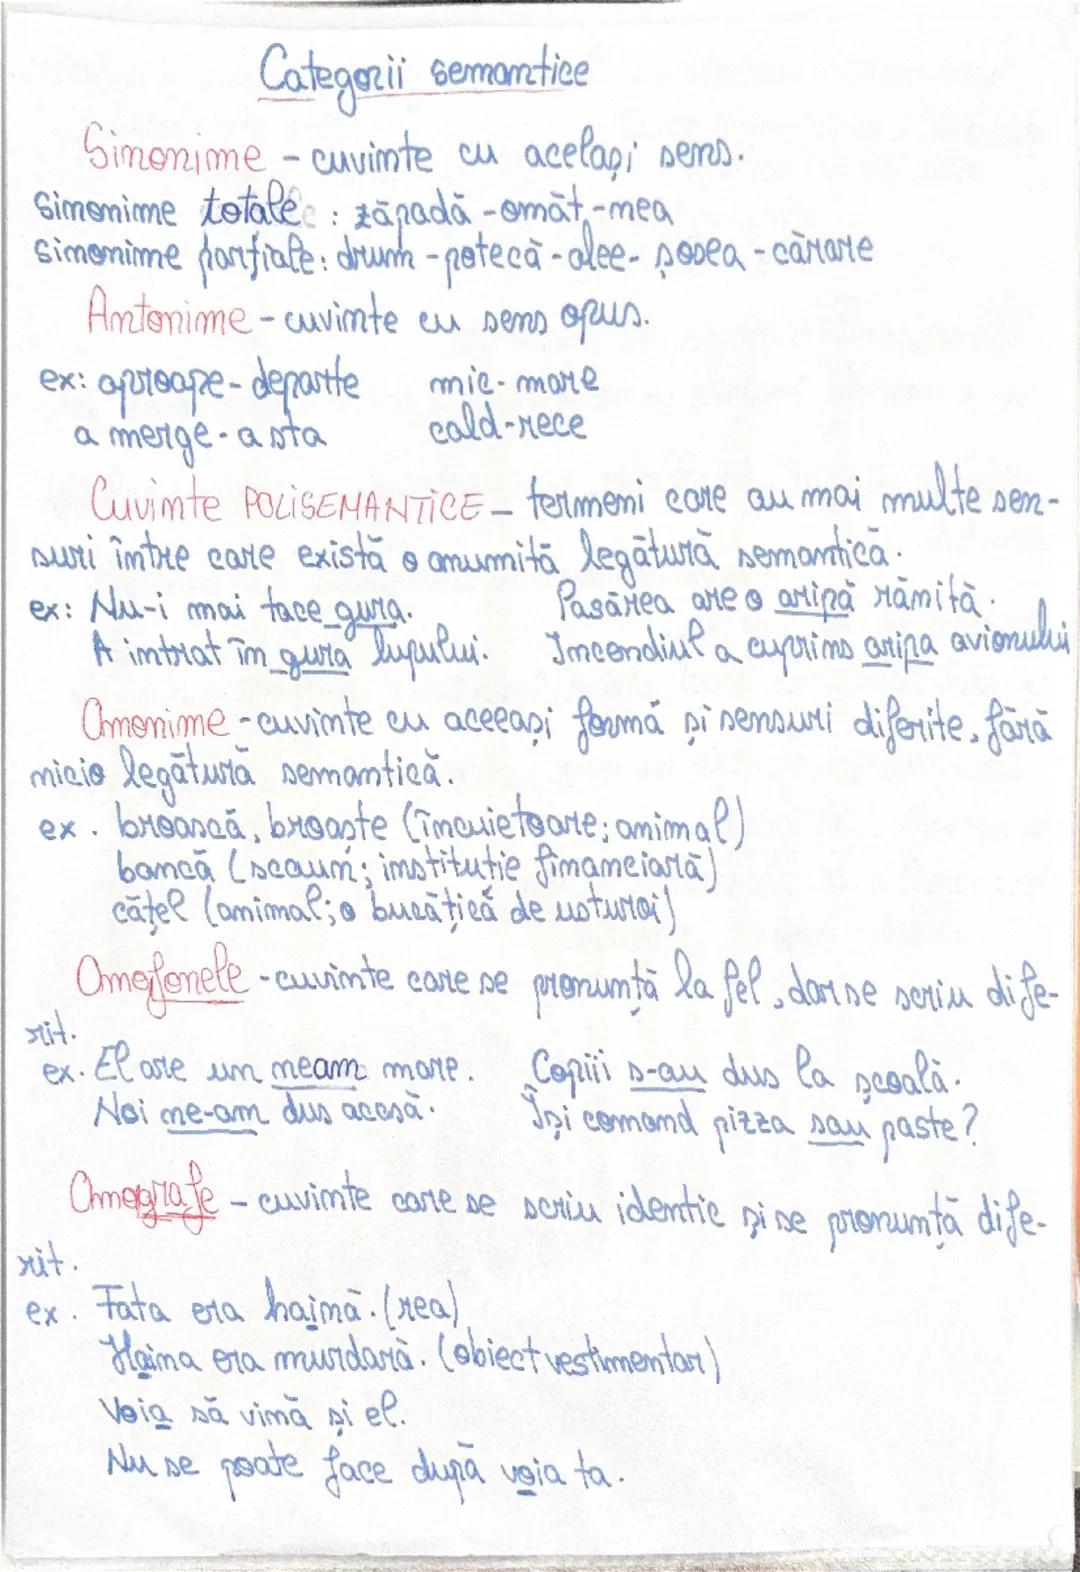 Categorii semantice
Sinonime - cuvinte cu același sens.
Sinonime totale : zăpadă - omăt - nea
Sinonime parțiale: drum - potecă - alee - șosea - cărare
Antonime - cuvinte cu sens opus.
ex: aproape - departe mic - mare
a merge - a sta cald - rece
Cuvinte POLISEMANTICE - termeni care au mai multe sen-
suri între care există o anumită legătură semantică.
ex: Nu-i mai tace gura. Pasărea are o aripă rănită.
A intrat în gura lupului. Incendiul a cuprins aripa avionului
Omonime - cuvinte cu aceeași formă și sensuri diferite, fără
nicio legătură semantică.
ex. broască, broaște (încuietoare; animal)
bancă (scaun; instituție financiară)
cățel (animal; o bucățică de usturoi)
Omofonele - cuvinte care se pronunță la fel, dar se scriu dife-
rit.
ex. El are un neam mare. Copiii s-au dus la școală.
Noi ne-am dus acasă. Își comand pizza sau paste?
Omografe - cuvinte care se scriu identic și se pronunță dife-
rit.
ex. Fata era haină. (rea)
Haina era murdară. (obiect vestimentar)
Voia să vină și el.
Nu se poate face după voia ta.